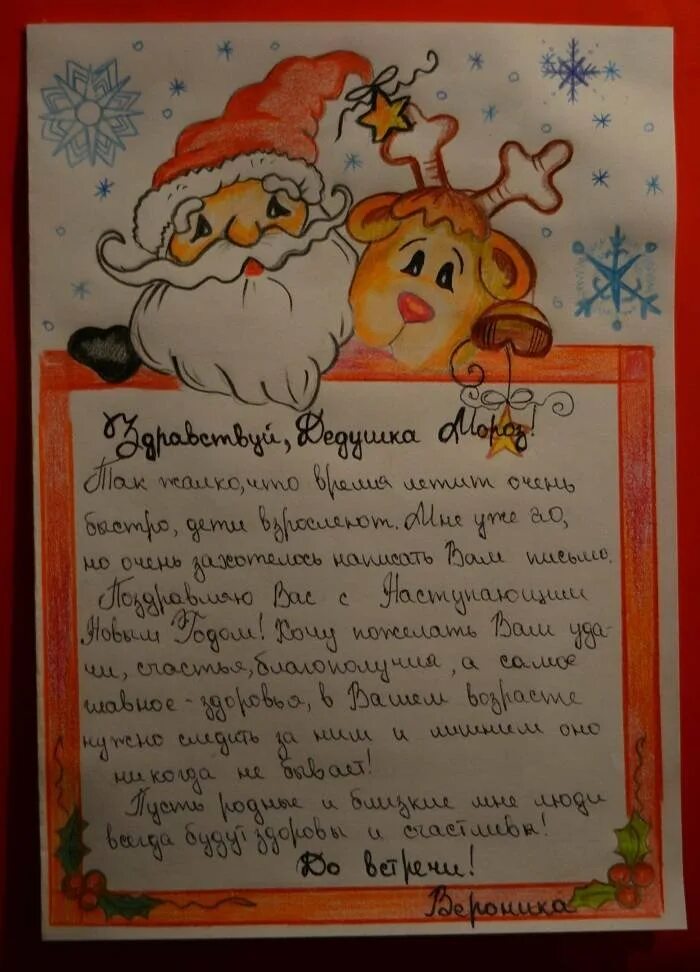 Здравствуй, Дедушка Мороз!
Так жалко, что время летит очень
быстро, дети взрослеют. Мне уже 20,
но очень захотелось написать Вам письмо.
Поздравляю Вас с Наступающим
Новым Годом! Хочу пожелать Вам уда-
чи, счастья, благополучия, а самое
главное - здоровья, в Вашем возрасте
нужно следить за ним и лишним оно
никогда не бывает!
Пусть родные и близкие мне люди
всегда будут здоровы и счастливы!
До встречи!
Вероника